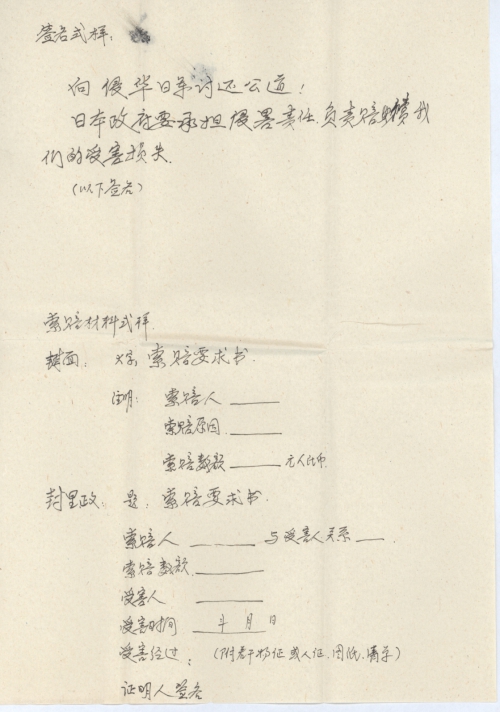 签名式样：
向侵华日军讨还公道！
日本政府要承担侵害责任.负责赔偿我
们的受害损失.
（以下签名）
索赔材料式样
封面： 大字 索赔要求书.
注明： 索赔人 ____
索赔原因 ____
索赔数额 ____ 元人民币
封里政： 题：索赔要求书.
索赔人 ____ 与受害人关系 __.
索赔数额 ____
受害人 ____
受害时间 年 月 日
受害经过：（附若干物证或人证.图纸.清单）
证明人签名